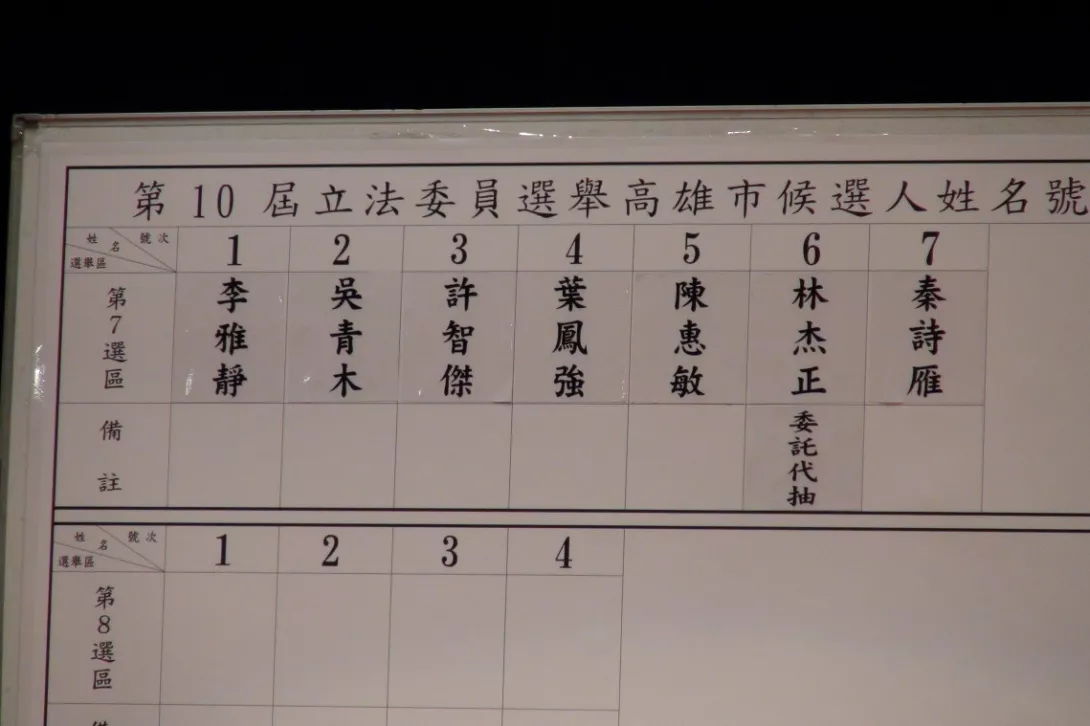 第 10 屆立法委員選舉高雄市候選人姓名號
姓名 號次 選舉區 1 2 3 4 5 6 7
第7選區 李雅靜 吳青木 許智傑 葉鳳強 陳惠敏 林杰正 秦詩雁
備註 委託代抽
姓名 號次 選舉區 1 2 3 4
第8選區